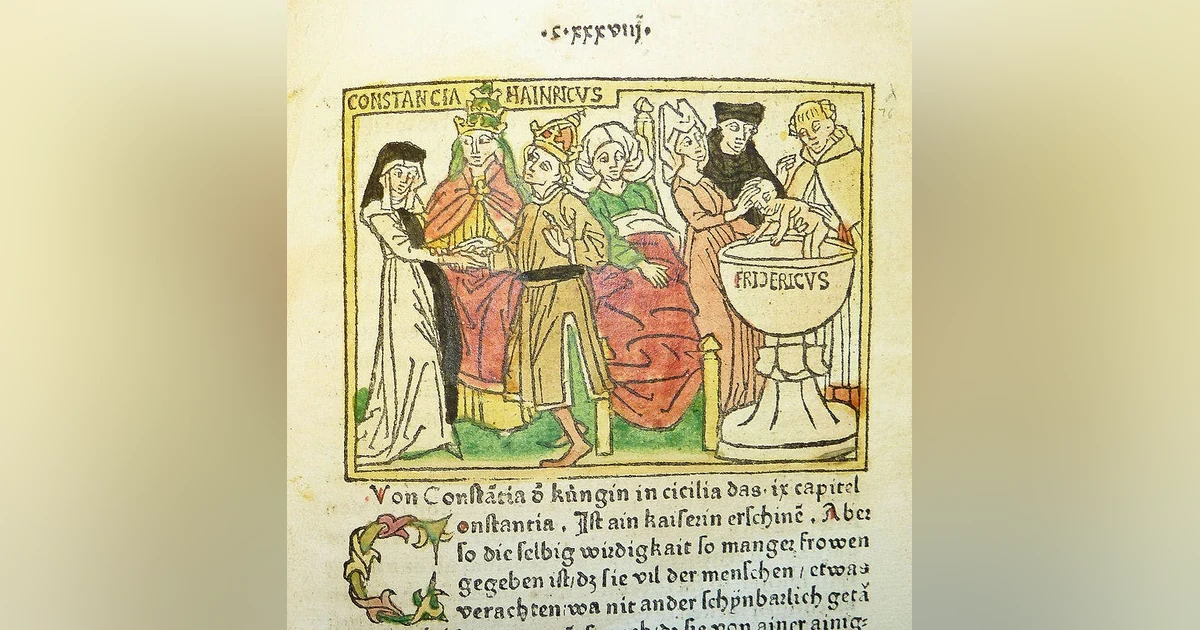 ·C·xxxviij·
CONSTANCIA HAINRICVS
FRIDERICVS
Von Constãtia d̾ kúngin in cicilia das·ix capitel
Constantia. Jst ain kaiserin erschinẽ. Aber
so die selbig wirdigkait so manger frowen
gegeben ist/dz sie vil der menschen/etwas
verachten·wa nit ander schÿnbarlich getã
dz sie von ainer ainig-